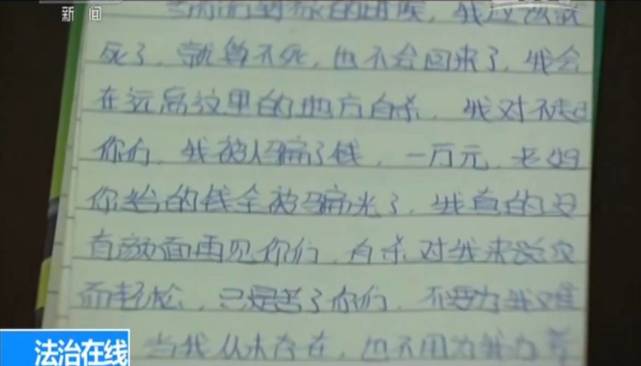 新闻
当你们看到信的时候，我应该就
死了，就算不死，也不会回来了，我会
在远离这里的地方自杀，我对不起
你们，我被人骗了钱，一万元，老妈
你给的钱全被骗光了，我真的没
有颜面再见你们，自杀对我来说反
而轻松，只是苦了你们，不要为我难
当我从未存在，也不用为我
法治在线